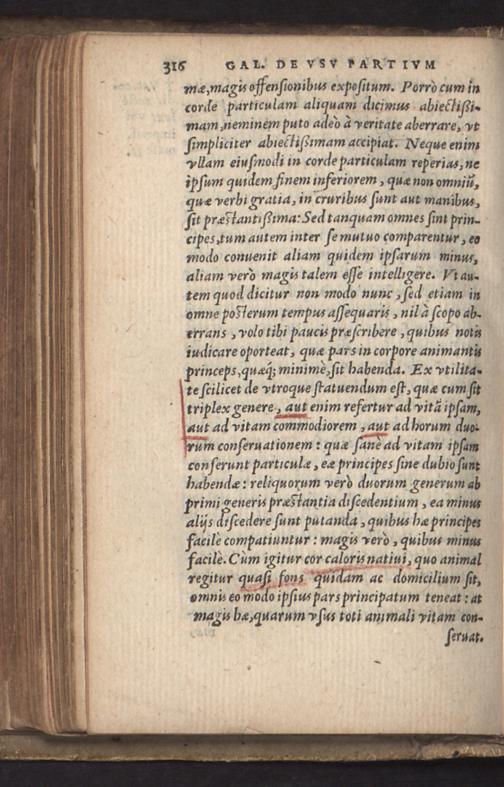 316 GAL. DE VSV PARTIVM
mæ, magis offensionibus expositum. Porrò cum in
corde particulam aliquam dicimus abiectißi-
mam, neminem puto adeò à veritate aberrare, vt
simpliciter abiectißimam accipiat. Neque enim
vllam eiusmodi in corde particulam reperias, ne
ipsum quidem finem inferiorem, quæ non omniũ,
quæ verbi gratia, in cruribus sunt aut manibus,
sit præstantißima: Sed tanquam omnes sint prin-
cipes, tum autem inter se mutuo comparentur, eo
modo conuenit aliam quidem ipsarum minus,
aliam verò magis talem esse intelligere. Vt au-
tem quod dicitur non modo nunc, sed etiam in
omne posterum tempus assequaris, nil à scopo ab-
errans, volo tibi paucis præscribere, quibus notis
iudicare oporteat, quæ pars in corpore animantis
princeps, quæq; minimè, sit habenda. Ex vtilita-
te scilicet de vtroque statuendum est, quæ cum sit
triplex genere, aut enim refertur ad vitã ipsam,
aut ad vitam commodiorem, aut ad horum duo-
rum conseruationem: quæ sanè ad vitam ipsam
conferunt particulæ, eæ principes sine dubio sunt
habendæ: reliquorum verò duorum generum ab
primi generis præstantia discedentium, ea minus
alijs discedere sunt putanda, quibus hæ principes
facilè compatiuntur: magis verò, quibus minus
facilè. Cum igitur cor caloris natiui, quo animal
regitur quasi fons quidam ac domicilium sit,
omnis eo modo ipsius pars principatum teneat: at
magis hæ, quarum vsus toti animali vitam con-
seruat.